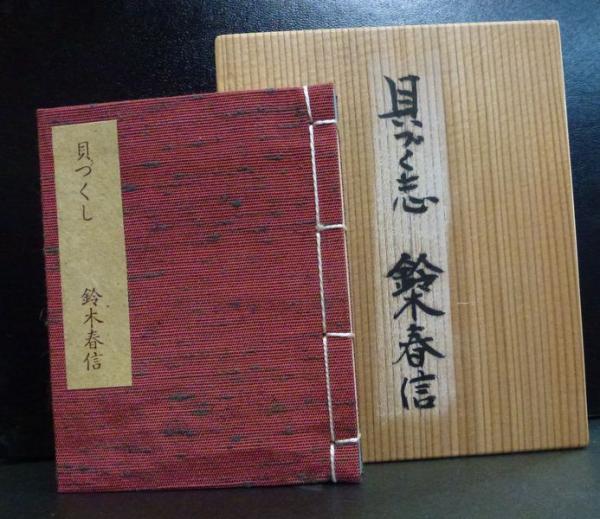 貝づくし 鈴木春信
貝づく志 鈴木春信